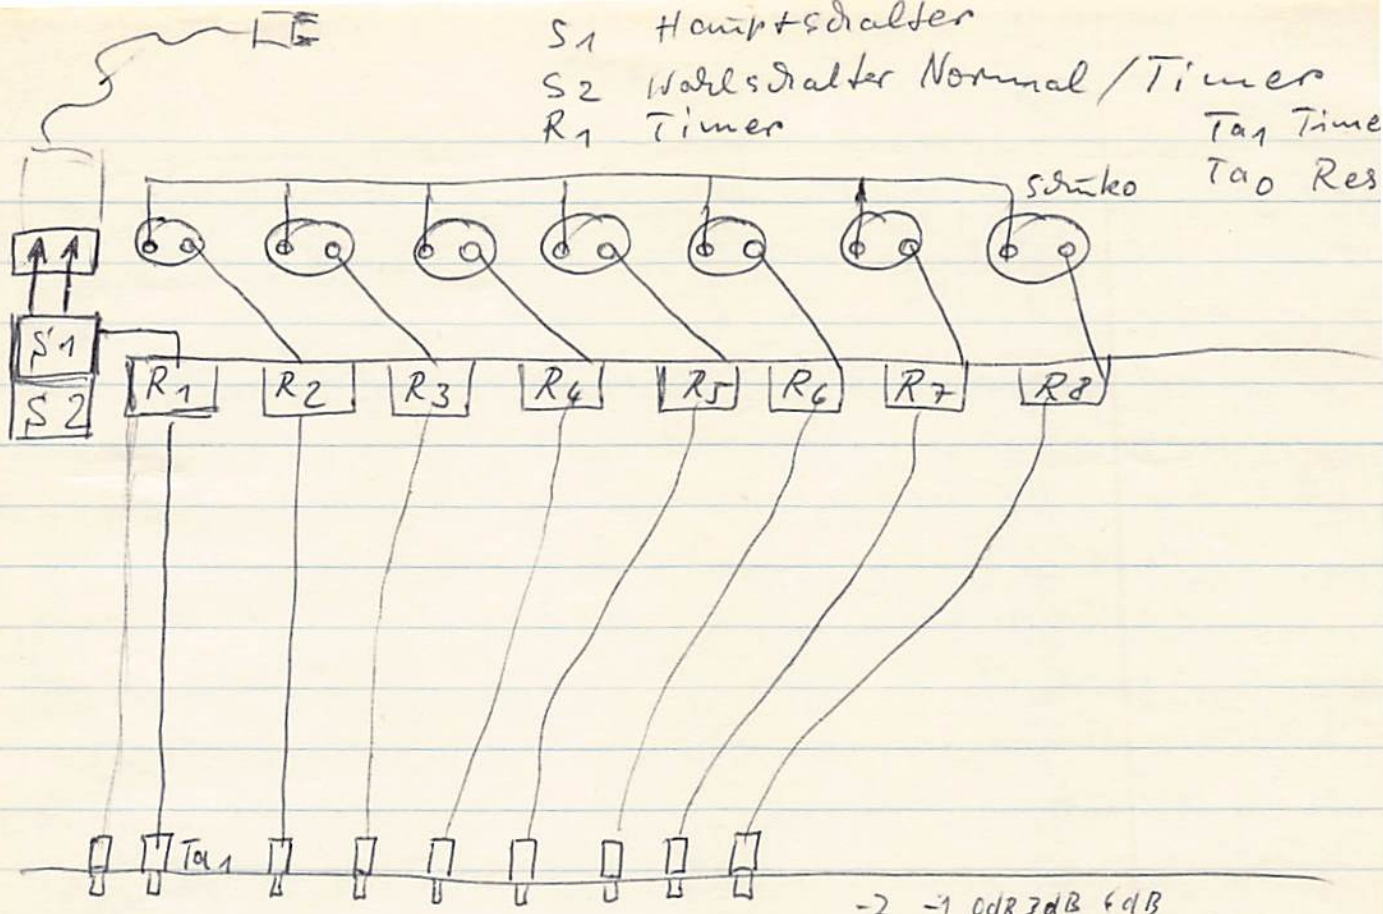 S1 Hauptschalter
S2 Wahlschalter Normal/Timer
R1 Timer
Ta1 Time
Schuko
Ta0 Res
S1
S2
R1 R2 R3 R4 R5 R6 R7 R8
Ta1
-2 -1 0dB 3dB 6dB